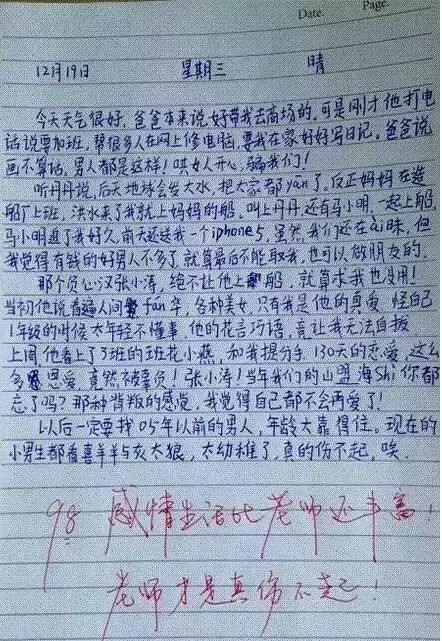 Date.
Page.
12月19日 星期三 晴
今天天气很好,爸爸本来说好带我去商场的,可是刚才他打电
话说要加班,帮很多人在网上修电脑,要我在家好好写日记。爸爸说
画不算话,男人都是这样!哄女人开心,骗我们!
听丹丹说,后天地球会发大水,把大家都yān了,反正妈妈在造
船厂上班,洪水来了我就上妈妈的船,叫上丹丹,还有马小明,一起上船,
马小明追了我好久,前天还送我一个iphone5,虽然我们还在ài昧,但
我觉得有钱的好男人不多了,就算最后不能取我,也可以做朋友的。
那个负心汉张小涛,绝不让他上船,就算求我也没用!
当初他说看遍人间fán华,各种美女,只有我是他的真爱,怪自己
1年级的时候太年轻不懂事,他的花言巧语,竟让我无法自拔
上周他看上了3班的班花小燕,和我提分手,130天的恋爱,这么
多恩爱,竟然被辜负!张小涛!当年我们的山盟海Shi你都
忘了吗?那种背叛的感觉,我觉得自己都不会再爱了!
以后一定要找05年以前的男人,年龄大靠得住。现在的
小男生都看喜羊羊与灰太狼,太幼稚了,真的伤不起,唉.
98 感情生活比老师还丰富!
老师才是真伤不起!